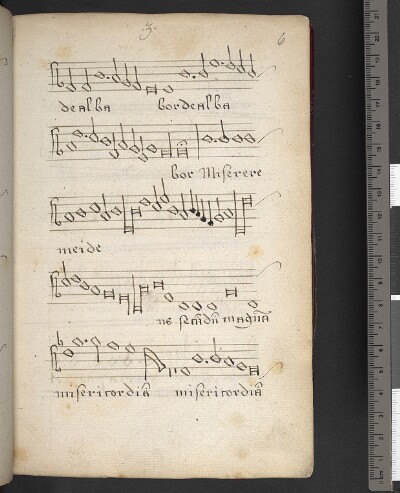 .3.
6
dealba bordealba
bor Miserere
meide
us secũdũ magnã
misericordiã misericordiã